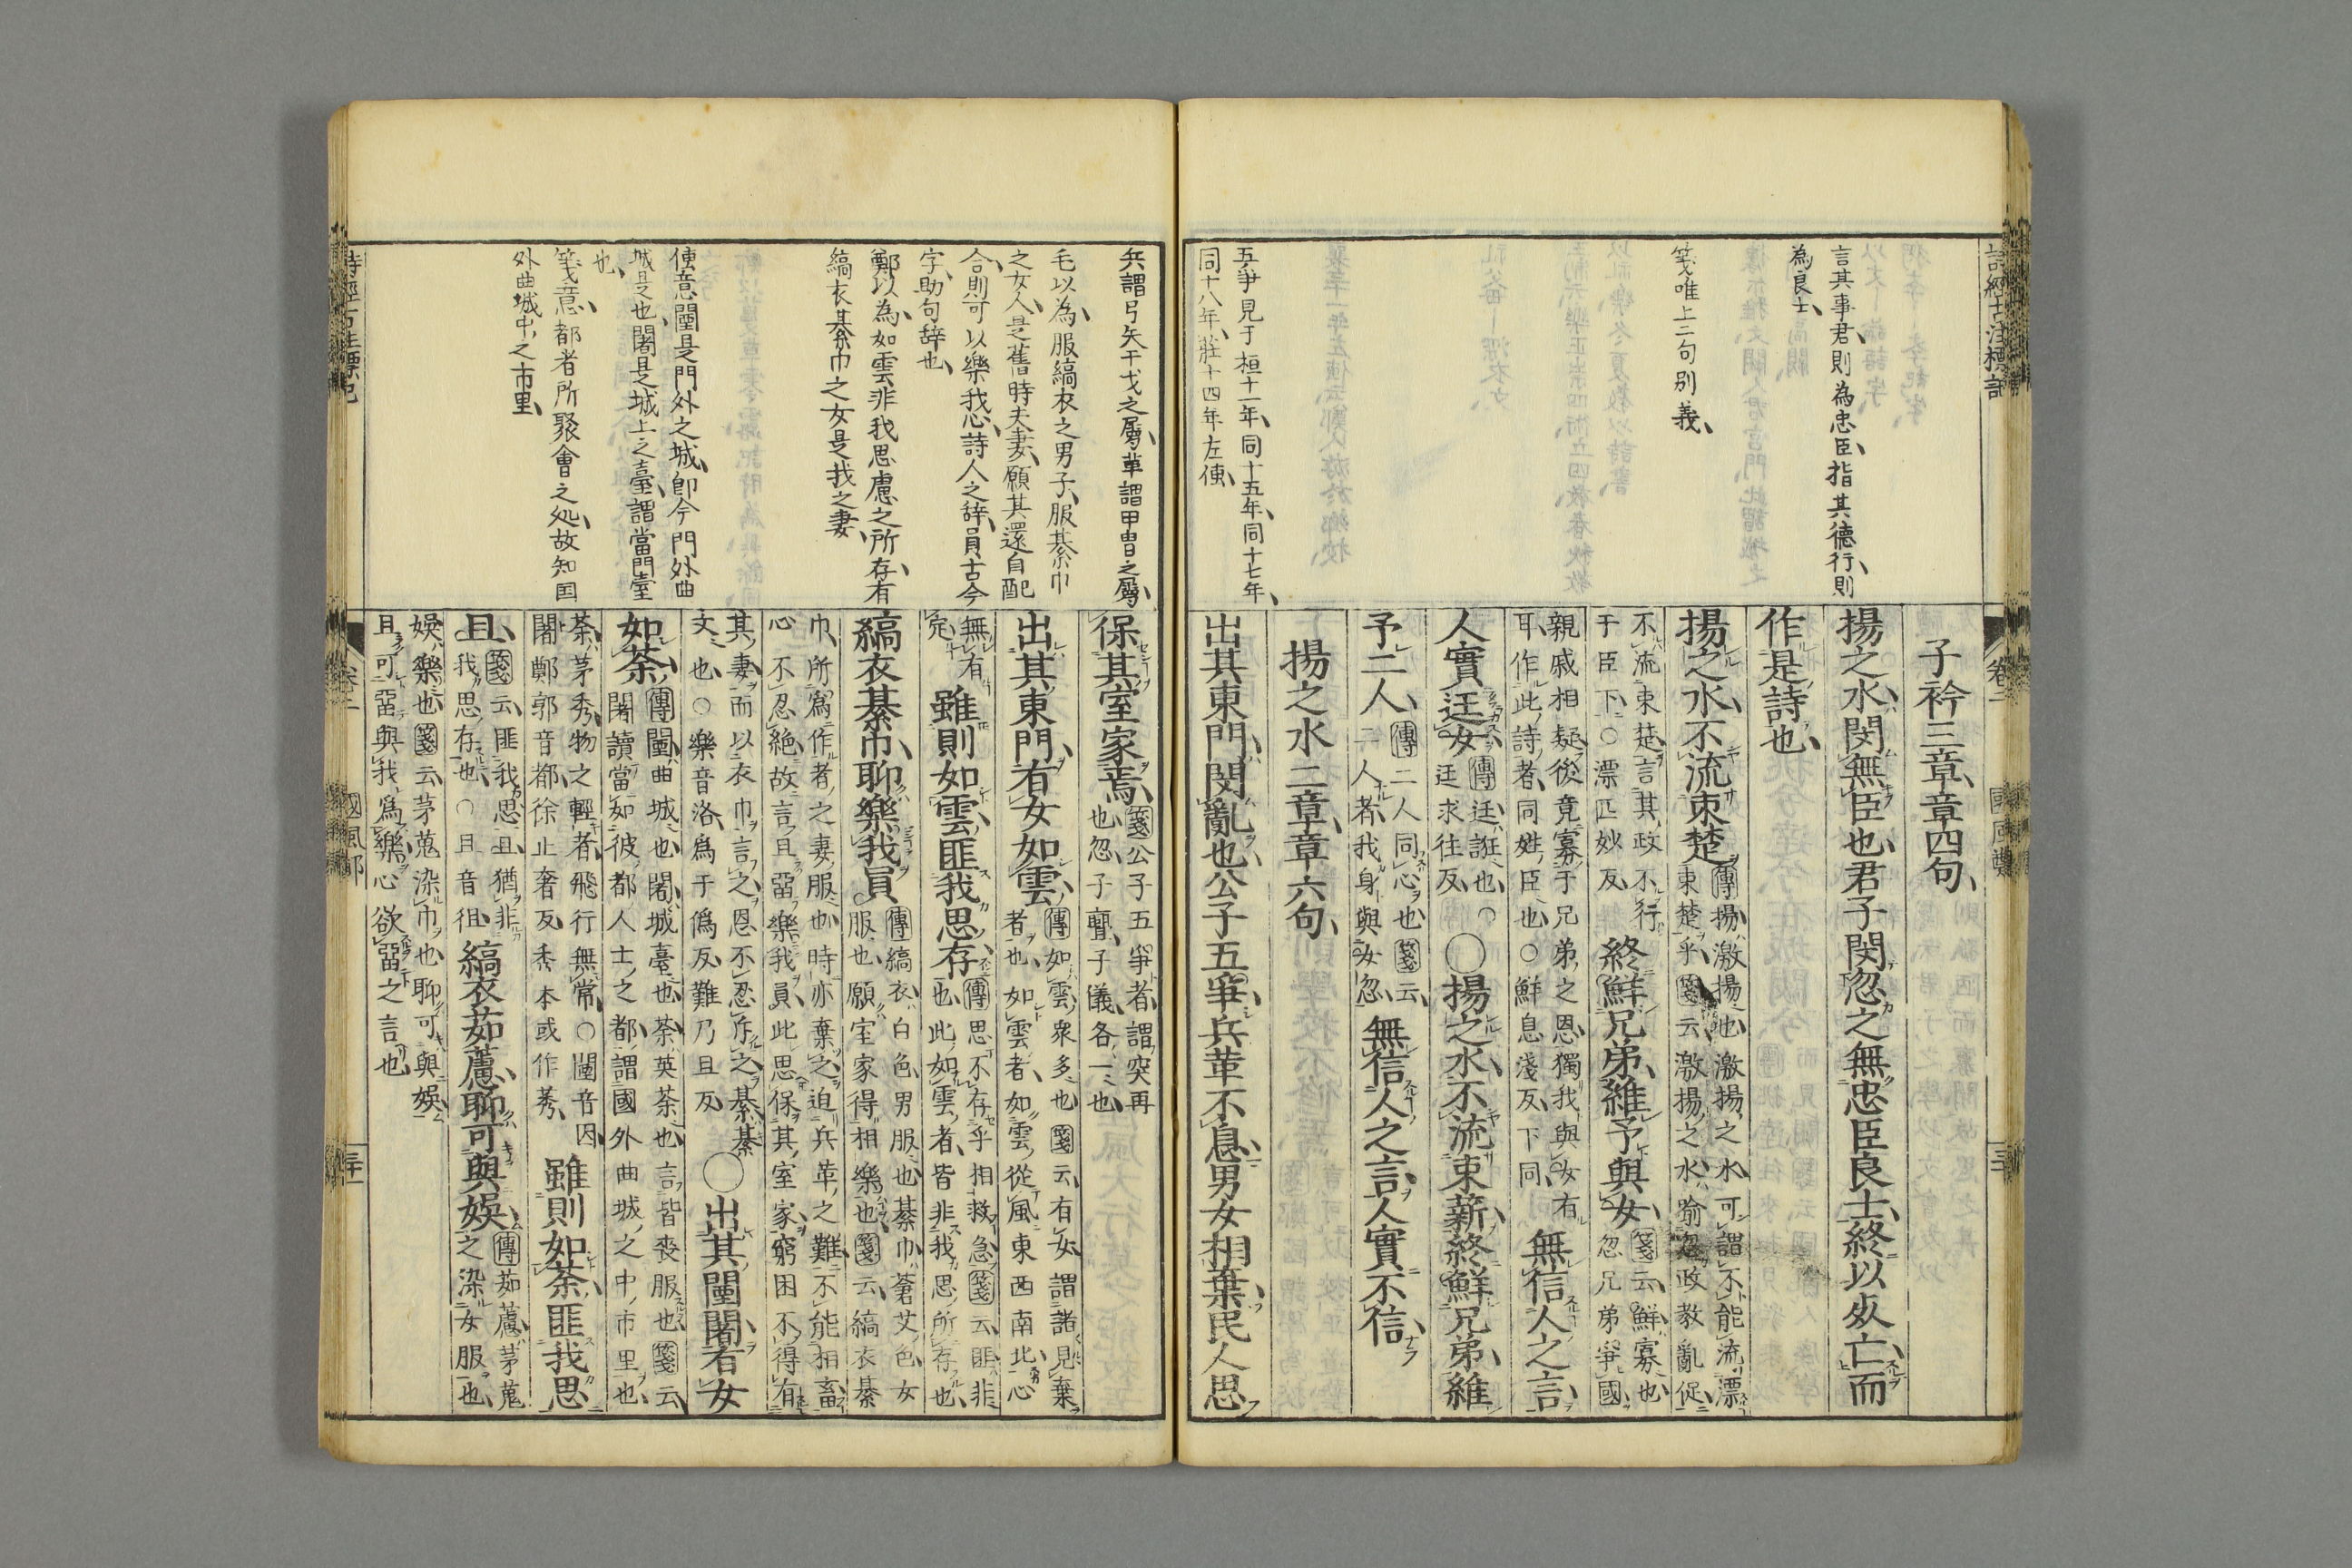 子衿三章章四句
揚之水閔無臣也君子閔忽之無忠臣良士終以死亡而
作是詩也
揚之水不流束楚傳揚激揚也激揚之水可謂不能流漂
束楚乎箋云激揚之水喻忽政教亂促
不流束楚言其政不行
于臣下○漂匹妙反
終鮮兄弟維予與女箋云鮮寡也
忽兄弟爭國
親戚相疑後竟寡于兄弟之恩獨我與女有
耳作此詩者同姓臣也○鮮息淺反下同
無信人之言
人實迋女傳迋誑也○
迋求往反
○揚之水不流束薪終鮮兄弟維
予二人傳二人同心也箋云
二人者我身與女忽
無信人之言人實不信
揚之水二章章六句
出其東門閔亂也公子五爭兵革不息男女相棄民人思
言其事君則為忠臣指其德行則
為良士
箋唯上二句別義
五爭見于桓十一年同十五年同十七年
同十八年莊十四年左傳
保其室家焉箋公子五爭者謂突再
也忽子亹子儀各一也
出其東門有女如雲傳如雲衆多也箋云有女謂諸見棄
者也如雲者如雲從風東西南北心
無有
定
雖則如雲匪我思存傳思不存乎相救急箋云匪非
也此如雲者皆非我思所存也
縞衣綦巾聊樂我員傳縞衣白色男服也綦巾蒼艾色女
服也願室家得相樂也箋云縞衣綦
巾所爲作者之妻服也時亦棄之迫兵革之難不能相畜
心不忍絶故言且留樂我員此思保其室家窮困不得有
其妻而以衣巾言之恩不忍斥之綦綦
文也○樂音洛爲于僞反難乃且反
○出其闉闍有女
如荼傳闉曲城也闍城臺也荼英荼也言皆喪服也箋云
闍讀當如彼都人士之都謂國外曲城之中市里也
荼茅秀物之輕者飛行無常○闉音因
闍鄭郭音都徐止奢反秀本或作莠
雖則如荼匪我思
且箋云匪我思且猶非
我思存也○且音徂
縞衣茹藘聊可與娛傳茹藘茅蒐
之染女服也
娛樂也箋云茅蒐染巾也聊可與娛
且可留與我爲樂心欲留之言也
兵謂弓矢干戈之屬革謂甲冑之屬
毛以為服縞衣之男子服綦巾
之女人是舊時夫妻願其還自配
合則可以樂我心詩人之辞員古今
字助句辞也
鄭以為如雲非我思慮之所存有
縞衣綦巾之女是我之妻
傳意闉是門外之城卽今門外曲
城是也闍是城上之臺謂當門臺
也
箋意都者所聚會之処故知国
外曲城中之市里